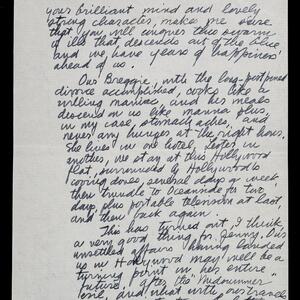 your brilliant mind and lovely
strong character, make me sure
that you will conquer this swarm
of ills that descends out of the blue
and we have years of happiness
ahead of us.
Our Breggie, with the long-postponed
divorce accomplished, cooks like a
willing maniac, and her meals
descend on us like manna plus,
in my case, stomach aches, and
never any hunger at the right hour.
She lives in one hotel, Lester in
another, we stay at this Hollywood
flat, surrounded by Hollywood's
cooing doves, several days a week
then trundle to Oceanside for two
days, plus portable television at last,
and then back again.
This has turned out, I think
a very good thing for Jenny. Our
unsettled affairs having landed
us in Hollywood may well be a
turning point in her entire
future, after the "Midsummer"
one, and what with